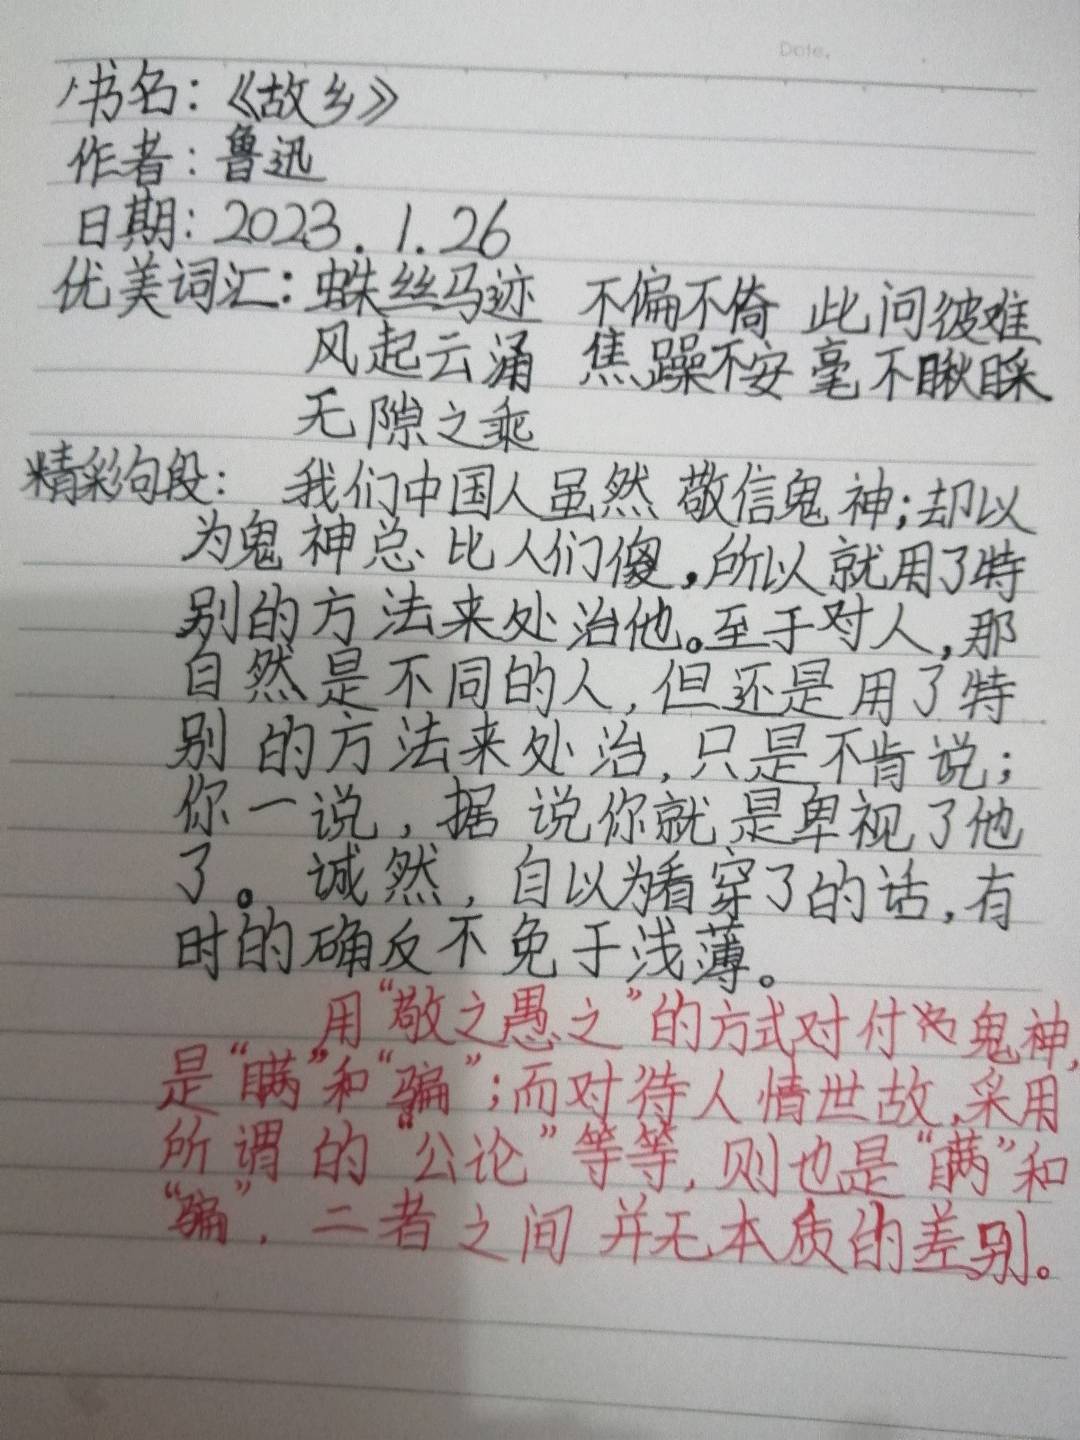 Date.
书名：《故乡》
作者：鲁迅
日期：2023.1.26
优美词汇：蛛丝马迹 不偏不倚 此问彼难
风起云涌 焦躁不安 毫不瞅睬
无隙之乘
精彩句段： 我们中国人虽然敬信鬼神；却以
为鬼神总比人们傻，所以就用了特
别的方法来处治他。至于对人，那
自然是不同的人，但还是用了特
别的方法来处治，只是不肯说；
你一说，据说你就是卑视了他
了。诚然，自以为看穿了的话，有
时的确反不免于浅薄。
用“敬之愚之”的方式对付鬼神，
是“瞒”和“骗”；而对待人情世故，采用
所谓的“公论”等等，则也是“瞒”和
“骗”，二者之间并无本质的差别。